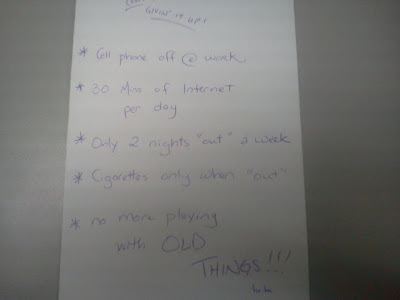 GIVIN' IT UP!
* Cell phone off @ work.
* 30 Mins of Internet
per day
* Only 2 nights "out" a week
* Cigarettes only when "out"
* no more playing
with OLD
THINGS!!!